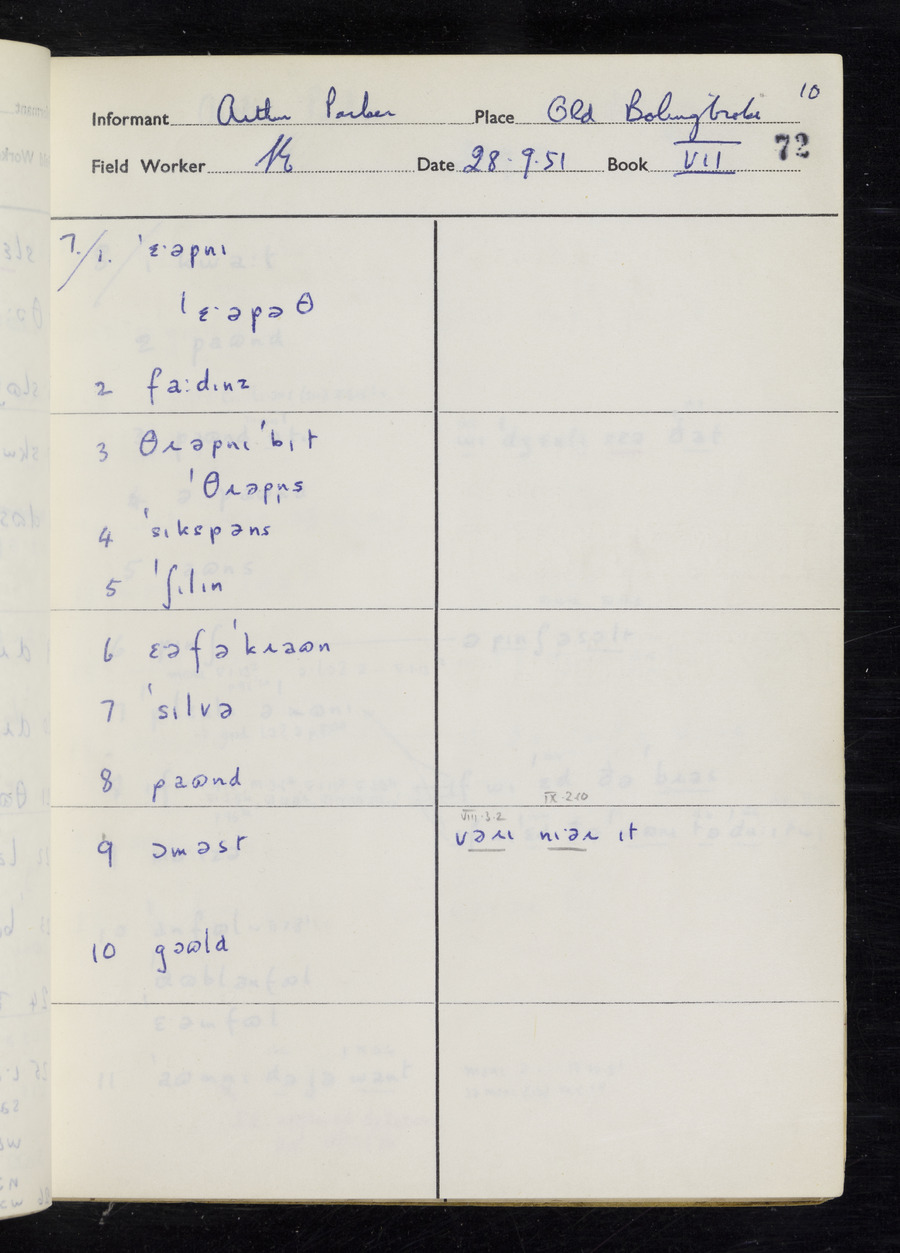 10
Informant Arthur Parker Place Old Bolingbroke
Field Worker Date 28.9.51 Book VII 72
7./1. ˈɛ·əpnɪ
ˈɛ·əpəθ
2 fa:dɪnz
3 θɹəpnɪˈbɪt
ˈθɹəpn̩s
4 ˈsɪkspəns
5 ˈʃɪlɪn
6 ɛəfəˈkɹaʊn
7 ˈsɪlvə
8 paʊnd
IX.2.10
VIII.3.2
9 əməst vəɹɪ nɪ·əɹ ɪt
10 gəʊld